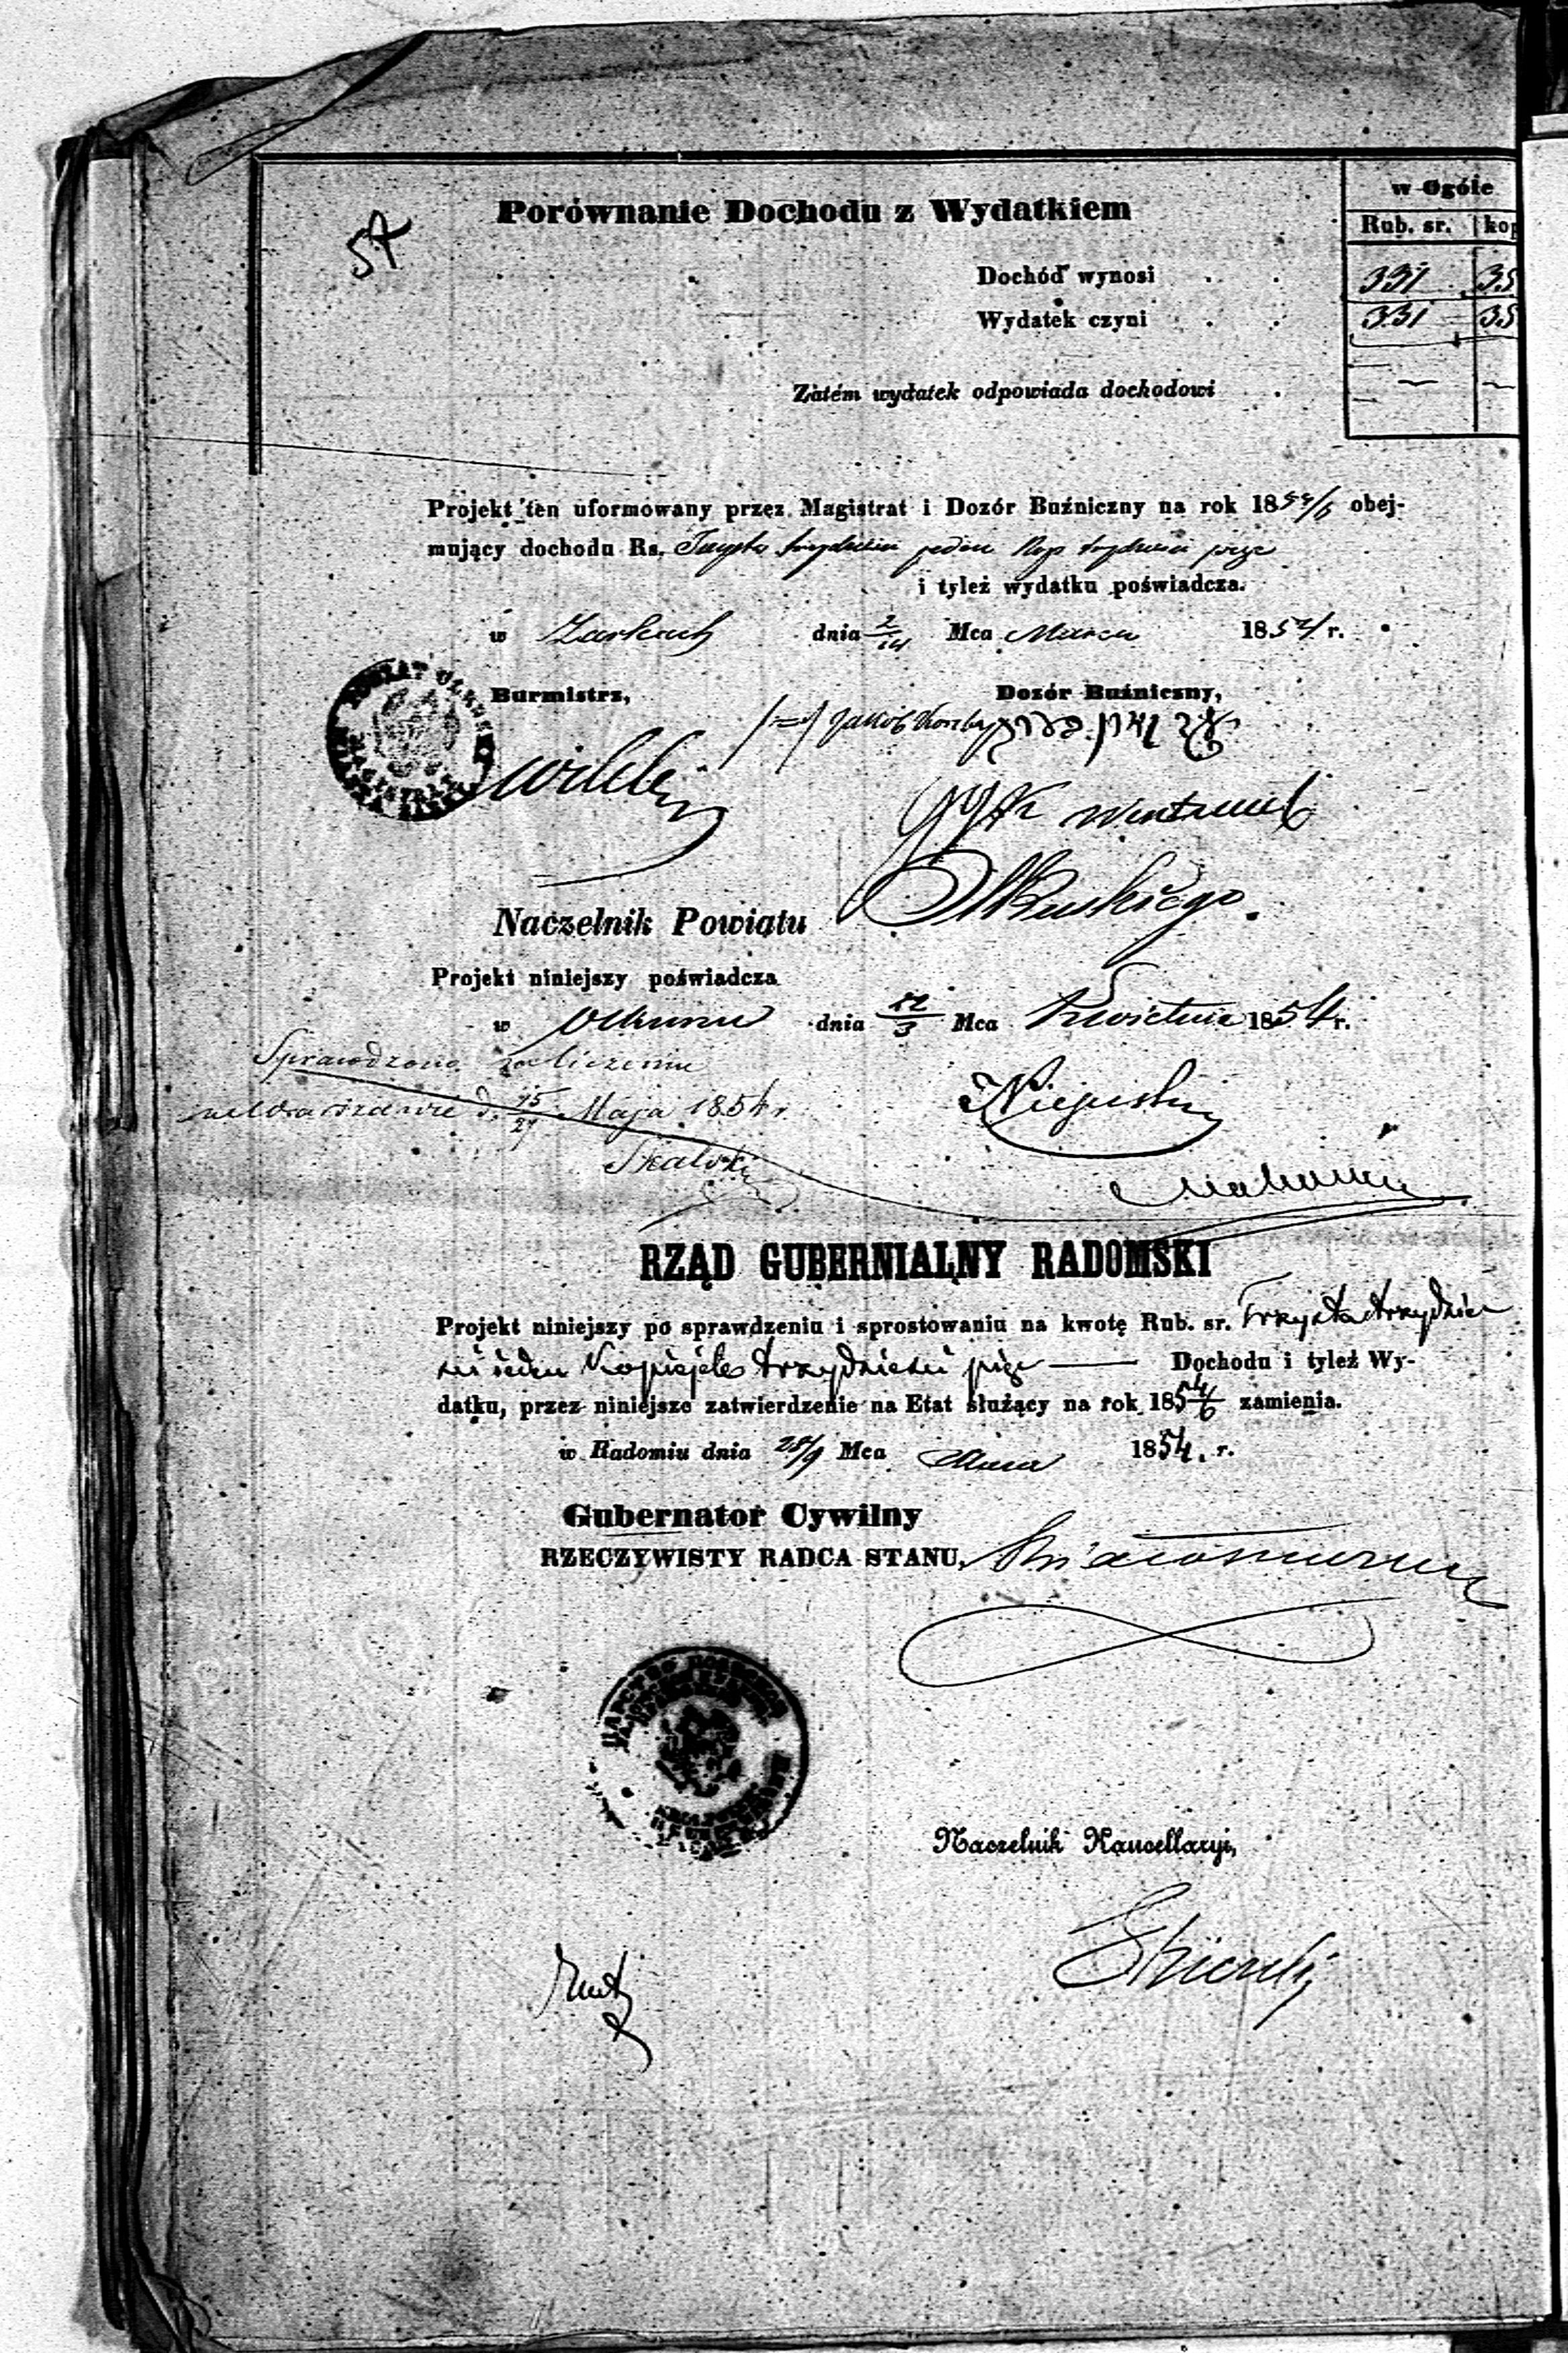 54
Porównanie Dochodu z Wydatkiem
w Ogóle
Rub. sr. kop
Dochód wynosi . . 331 35
Wydatek czyni . . 331 35
Zatém wydatek odpowiada dochodowi .
Projekt ten uformowany przez Magistrat i Dozór Buźniczny na rok 1854/6 obej-
mujący dochodu Rs. Trzysta trzydzieści jeden Kop trzydzieści pięć
i tyleż wydatku poświadcza.
w Żarkach dnia 2/14 Mca Marca 1854 r.
Burmistrz,
Dozór Buźniczny,
Naczelnik Powiatu Olkuskiego.
Projekt niniejszy poświadcza
w Olkuszu dnia 22/3 Mca Kwietnia 1854 r.
Sprawdzono
w Warszawie d. 15/27 Maja 1854 r.
Skalski
RZĄD GUBERNIALNY RADOMSKI
Projekt niniejszy po sprawdzeniu i sprostowaniu na kwotę Rub. sr. Trzysta trzydzie
ści jeden Kopiejek trzydzieści pięć — Dochodu i tyleż Wy-
datku, przez niniejsze zatwierdzenie na Etat służący na rok 1854/6 zamienia.
w Radomiu dnia 28/9 Mca 1854. r.
Gubernator Cywilny
RZECZYWISTY RADCA STANU,
Naczelnik Kancellaryi,